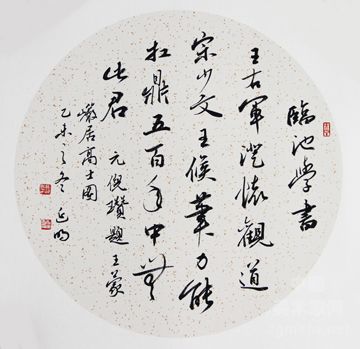 臨池學書
王右軍澄懷觀道
宗少文王侯筆力能
扛鼎五百年中無
此君 元倪瓚題王蒙
巖居高士圖
乙未之冬